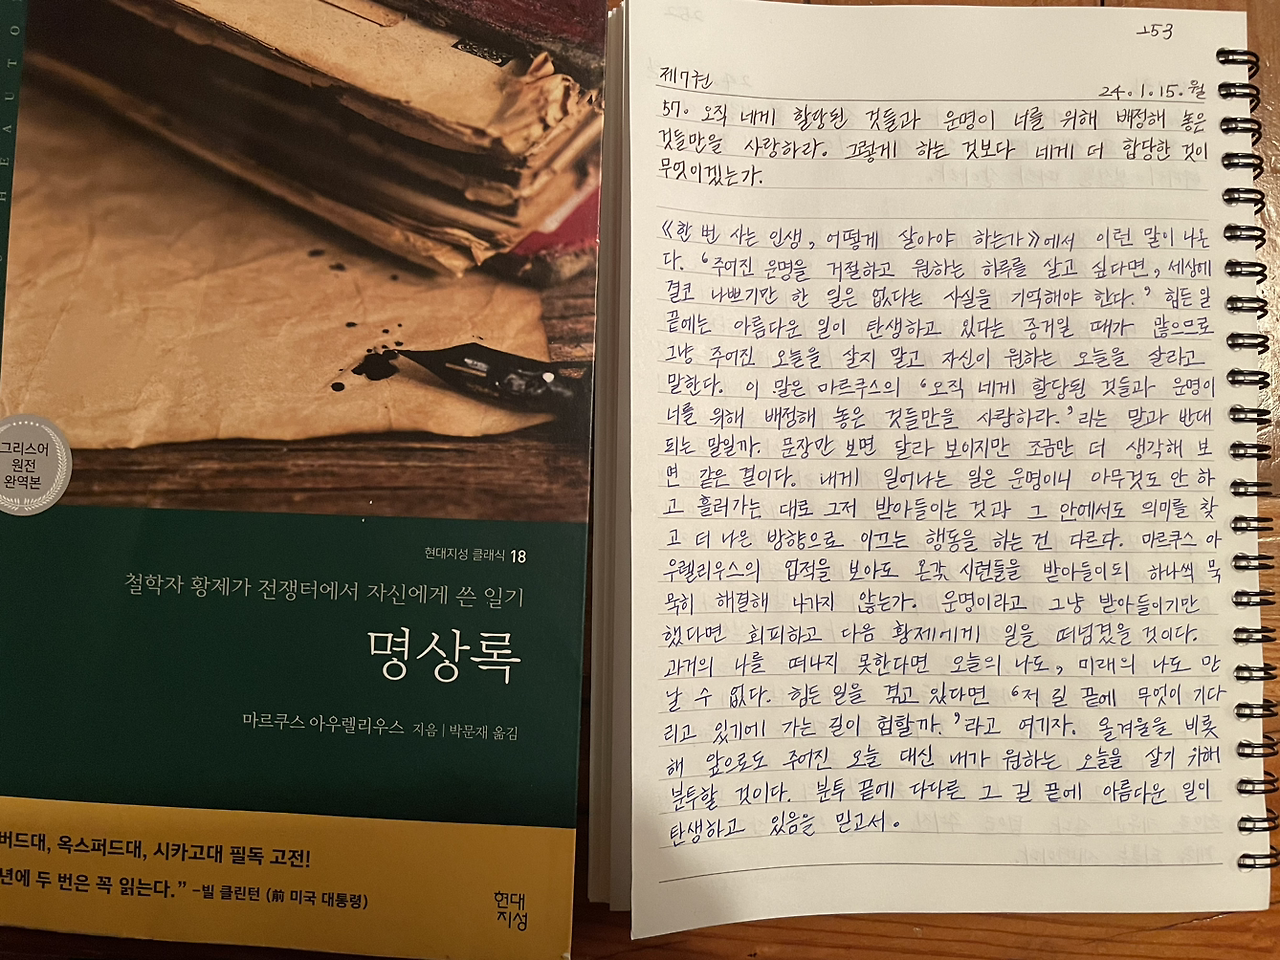 HEAUTO
그리스어
원전
완역본
현대지성 클래식 18
철학자 황제가 전쟁터에서 자신에게 쓴 일기
명상록
마르쿠스 아우렐리우스 지음 | 박문재 옮김
버드대, 옥스퍼드대, 시카고대 필독 고전!
년에 두 번은 꼭 읽는다.” –빌 클린턴 (前 미국 대통령)
현대
지성
253
제7권
24. 1. 15. 월
57. 오직 네게 할당된 것들과 운명이 너를 위해 배정해 놓은
것들만을 사랑하라. 그렇게 하는 것보다 네게 더 합당한 것이
무엇이겠는가.
《한 번 사는 인생, 어떻게 살아야 하는가》에서 이런 말이 나온
다. ‘주어진 운명을 거절하고 원하는 하루를 살고 싶다면, 세상에
결코 나쁘기만 한 일은 없다는 사실을 기억해야 한다.’ 힘든 일
끝에는 아름다운 일이 탄생하고 있다는 증거일 때가 많으므로
그냥 주어진 오늘을 살지 말고 자신이 원하는 오늘을 살라고
말한다. 이 말은 마르쿠스의 ‘오직 네게 할당된 것들과 운명이
너를 위해 배정해 놓은 것들만을 사랑하라.’라는 말과 반대
되는 말일까. 문장만 보면 달라 보이지만 조금만 더 생각해 보
면 같은 결이다. 내게 일어나는 일은 운명이니 아무것도 안 하
고 흘러가는 대로 그저 받아들이는 것과 그 안에서도 의미를 찾
고 더 나은 방향으로 이끄는 행동을 하는 건 다르다. 마르쿠스 아
우렐리우스의 업적을 보아도 온갖 시련들을 받아들이되 하나씩 묵
묵히 해결해 나가지 않는가. 운명이라고 그냥 받아들이기만
했다면 회피하고 다음 황제에게 일을 떠넘겼을 것이다.
과거의 나를 떠나지 못한다면 오늘의 나도, 미래의 나도 만
날 수 없다. 힘든 일을 겪고 있다면 ‘저 길 끝에 무엇이 기다
리고 있기에 가는 길이 험할까.’라고 여기자. 올겨울을 비롯
해 앞으로도 주어진 오늘 대신 내가 원하는 오늘을 살기 위해
분투할 것이다. 분투 끝에 다다른 그 길 끝에 아름다운 일이
탄생하고 있음을 믿고서.